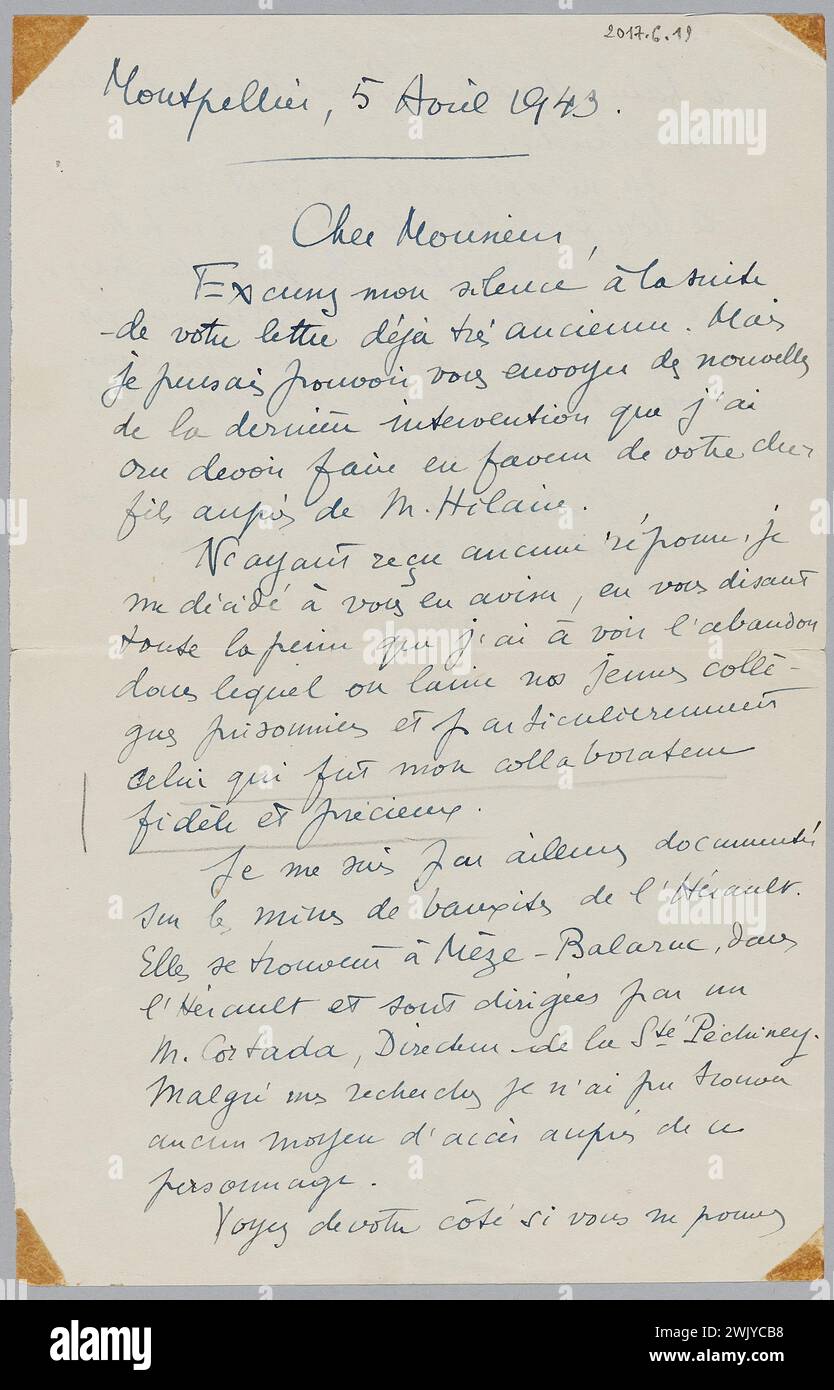 2017.6.19
Montpellier, 5 Avril 1943.
Cher Monsieur,
Excusez mon silence à la suite
de votre lettre déjà très ancienne. Mais
je pensais pouvoir vous envoyer des nouvelles
de la dernière intervention que j'ai
cru devoir faire en faveur de votre cher
fils auprès de M. Hilaire.
N'ayant reçu aucune réponse, je
me décide à vous en aviser, en vous disant
toute la peine que j'ai à voir l'abandon
dans lequel on laisse nos jeunes collè-
gues prisonniers et particulièrement
celui qui fut mon collaborateur
fidèle et précieux.
Je me suis par ailleurs documenté
sur les mines de bauxites de l'Hérault.
Elles se trouvent à Mèze-Balaruc, dans
l'Hérault et sont dirigées par un
M. Cortada, Directeur de la Sté Péchiney.
Malgré mes recherches je n'ai pu trouver
aucun moyen d'accès auprès de ce
personnage.
Voyez de votre côté si vous ne pouvez
alamy
Image ID: 2WJYCB8
www.alamy.com